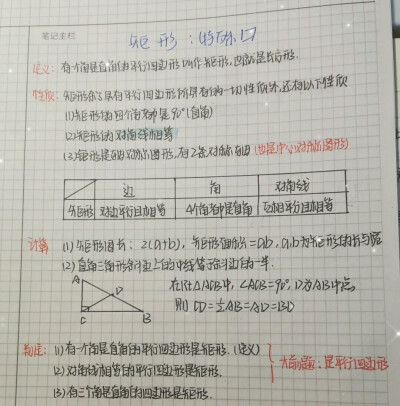 笔记主栏
矩形:
定义: 有一个角是直角的平行四边形叫作矩形,也就是长方形.
性质: 矩形除了具有平行四边形所具有的一切性质外,还有以下性质
(1)矩形的四个角都是90°(直角)
(2)矩形的对角线相等
(3)矩形是轴对称图形,有2条对称轴 (也是中心对称图形)
边 角 对角线
矩形 对边平行且相等 4个角都是直角 互相平行且相等
计算 (1) 矩形周长: 2(a+b), 矩形面积=ab, a,b为矩形的长与宽
(2) 直角三角形斜边上的中线等于斜边的一半.
A
D
C B
在Rt△ACB中, ∠ACB=90°, D为AB中点,
则 CD=½AB=AD=BD
判定: (1) 有一个角是直角的平行四边形是矩形. (定义)
(2) 对角线相等的平行四边形是矩形.
大前提: 是平行四边形
(3) 有三个角是直角的四边形是矩形.